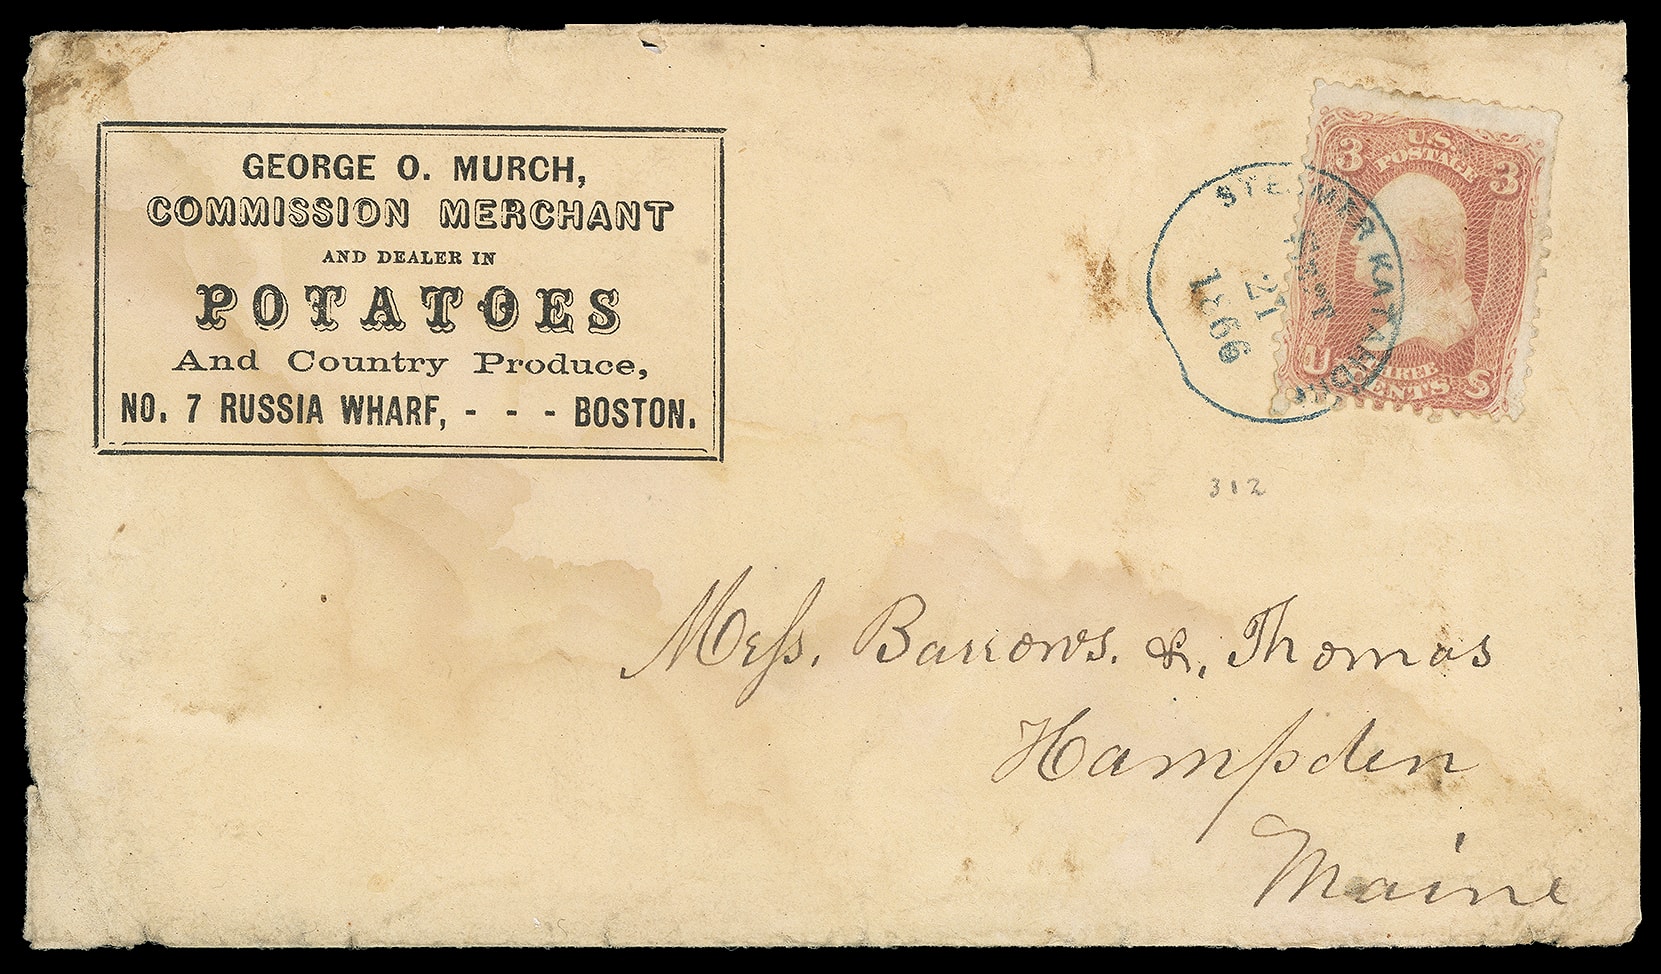 GEORGE O. MURCH,
COMMISSION MERCHANT
AND DEALER IN
POTATOES
And Country Produce,
NO. 7 RUSSIA WHARF, - - - BOSTON.
STEAMER KATAHDIN
21
1866
3 U.S. 3
POSTAGE
U THREE S
CENTS
312
Mess. Barrows. &. Thomas
Hampden
Maine